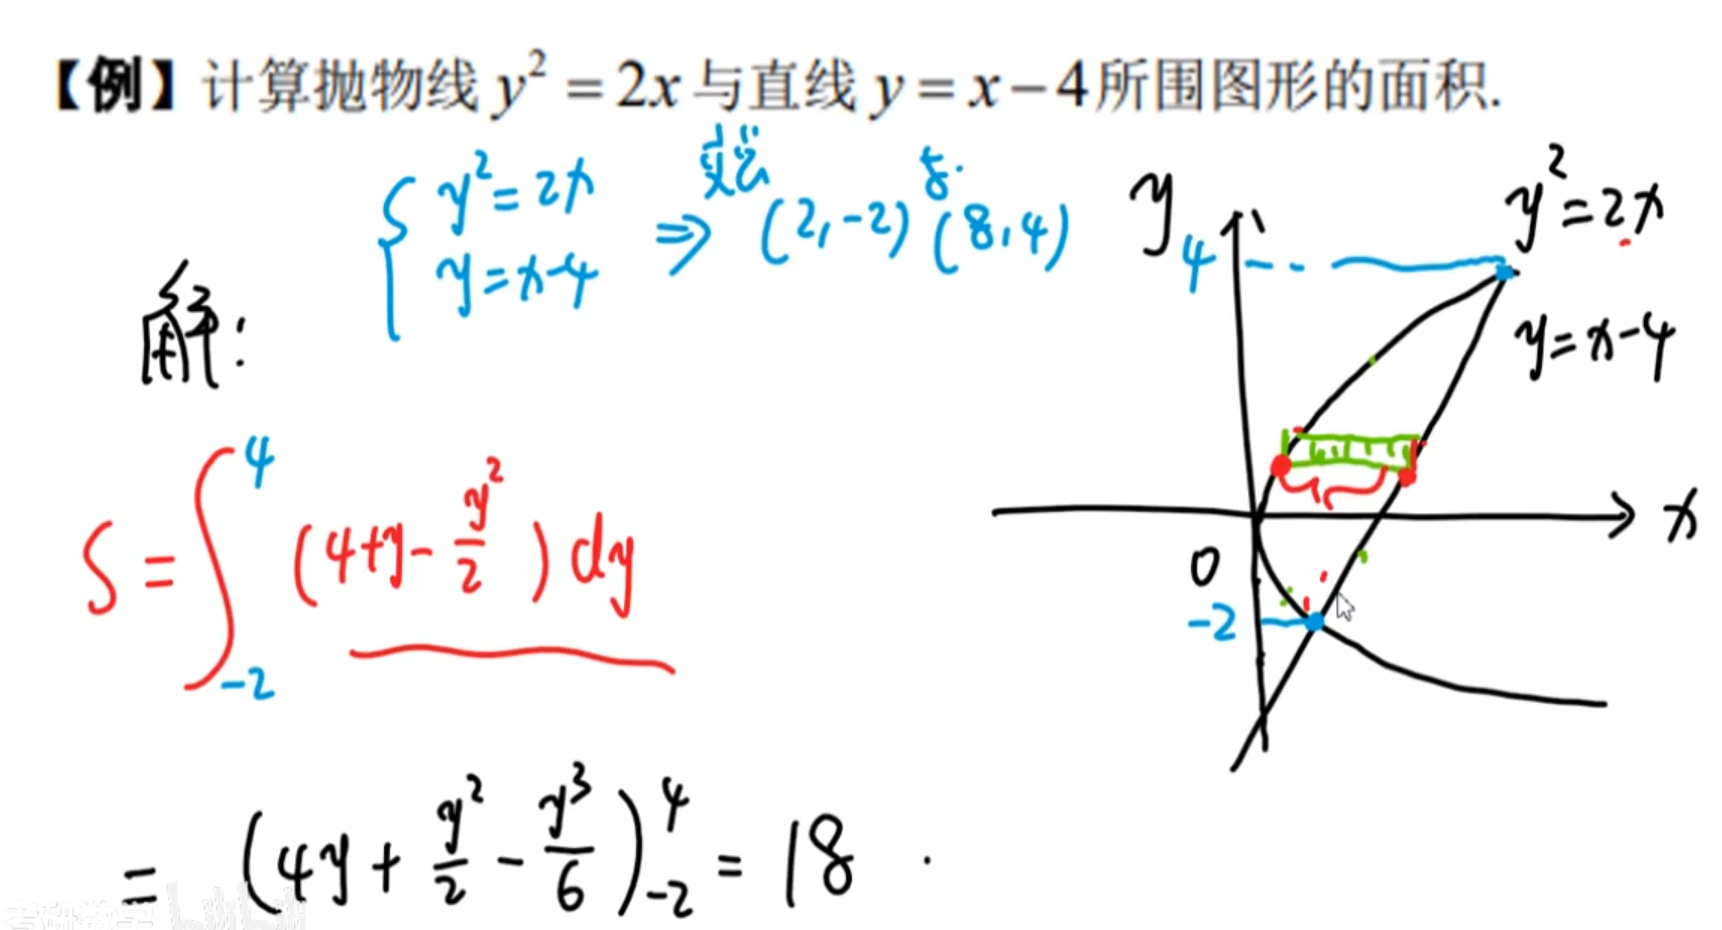 【例】计算抛物线 y² = 2x 与直线 y = x − 4 所围图形的面积.
{ y² = 2x
y = x-4 ⇒ (2, -2) (8, 4)
解:
S = ∫_{-2}^{4} (4+y - y²/2) dy
= (4y + y²/2 - y³/6)_{-2}^{4} = 18 .
y
4
y² = 2x
y = x-4
x
0
-2